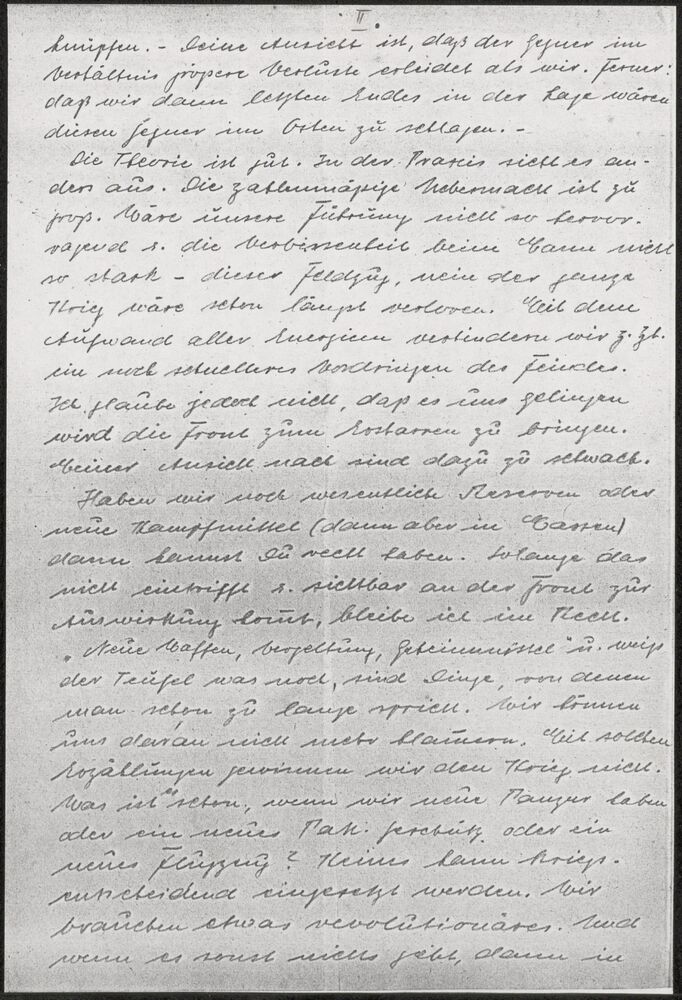 II.
knüpfen. - Deine Ansicht ist, daß der Gegner im
Verhältnis größere Verluste erleidet als wir. Ferner:
daß wir dann letzten Endes in der Lage wären
diesen Gegner im Osten zu schlagen. -
Die Theorie ist gut. In der Praxis sieht es an-
ders aus. Die zahlenmäßige Uebermacht ist zu
groß. Wäre unsere Führung nicht so hervor-
ragend u. die Verbissenheit beim Mann nicht
so stark - dieser Feldzug, nein der ganze
Krieg wäre schon längst verloren. Mit dem
Aufwand aller Energien verhindern wir z. Zt.
ein noch schnelleres Vordringen des Feindes.
Ich glaube jedoch nicht, daß es uns gelingen
wird die Front zum Erstarren zu bringen.
Meiner Ansicht nach sind dazu zu schwach.
Haben wir noch wesentliche Reserven oder
neue Kampfmittel (dann aber in Massen)
dann kannst Du recht haben. Solange das
nicht eintrifft u. sichtbar an der Front zur
Auswirkung komt, bleibe ich im Recht.
"Neue Waffen, Vergeltung, Geheimmittel" u. weiß
der Teufel was noch, sind Dinge, von denen
man schon zu lange spricht. Wir können
uns daran nicht mehr klammern. Mit solchen
Erzählungen gewinnen wir den Krieg nicht.
Was ist "schon", wenn wir neue Panzer haben
oder ein neues Pak. Geschütz oder ein
neues Flugzeug? Keines kann kriegs-
entscheidend eingesetzt werden. Wir
brauchen etwas revolutionäres. Und
wenn es sonst nichts gibt, dann in